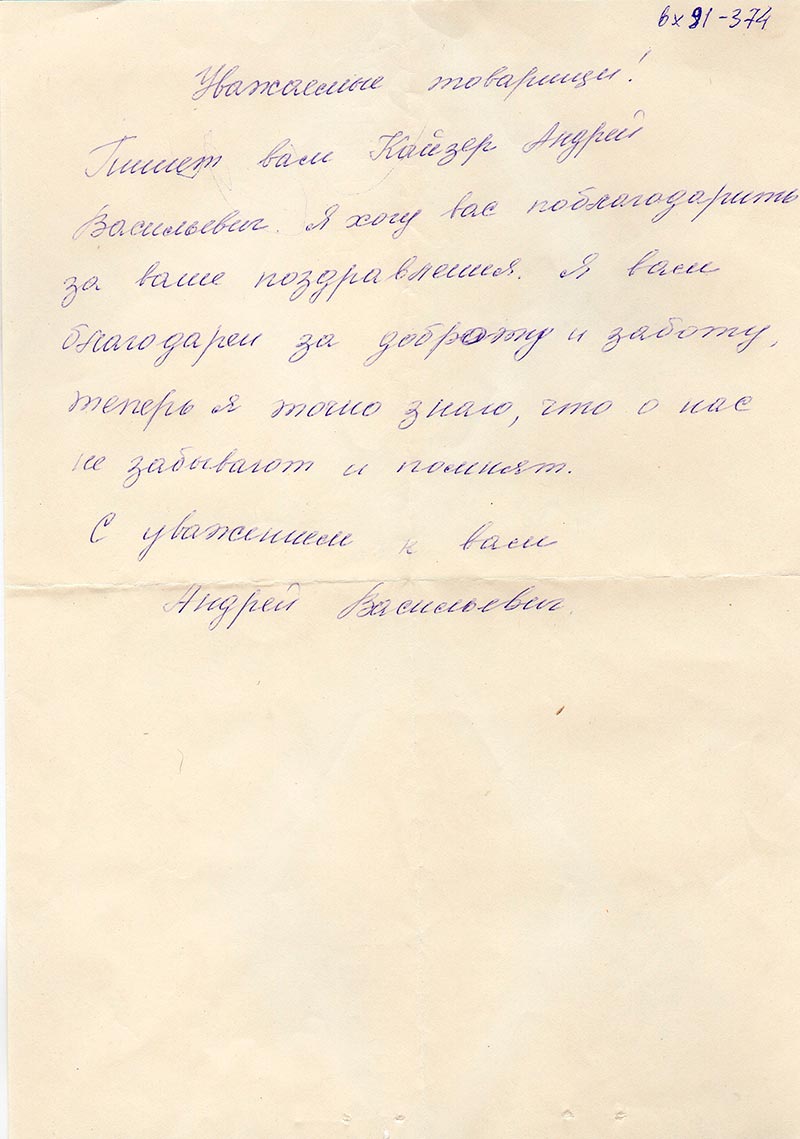 вх 91-374
Уважаемые товарищи!
Пишет вам Кайзер Андрей
Васильевич. Я хочу вас поблагодарить
за ваше поздравления. Я вам
благодарен за доброту и заботу,
теперь я точно знаю, что о нас
не забывают и помнят.
С уважением к вам
Андрей Васильевич.